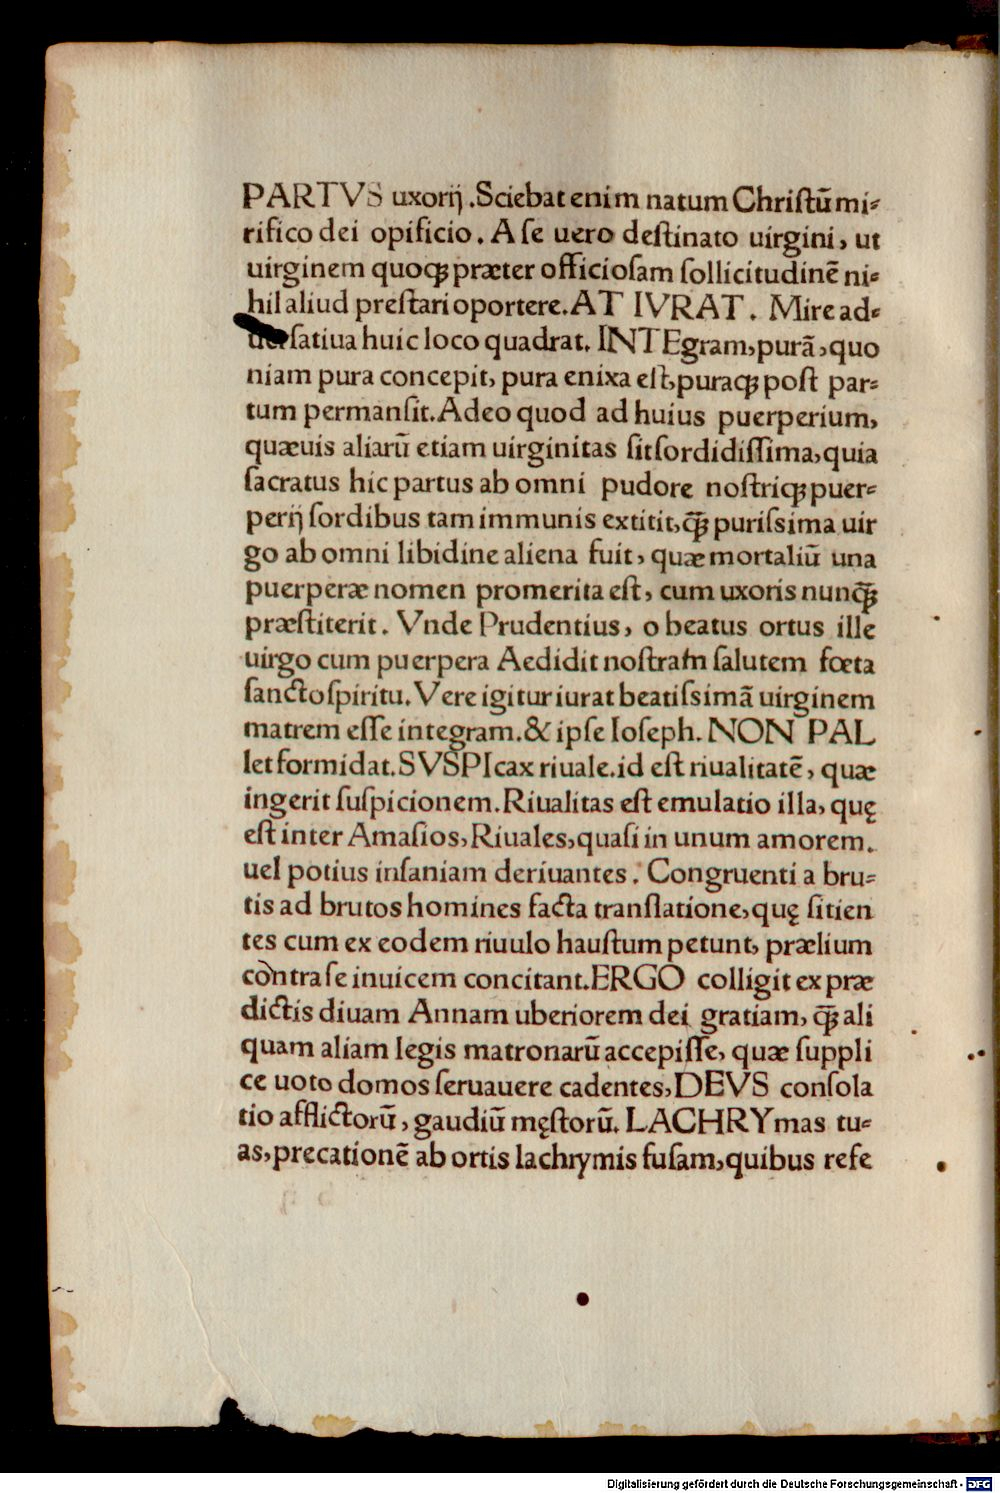 PARTVS uxorij .Sciebat enim natum Christū mi⸗
rifico dei opificio. A se uero destinato uirgini, ut
uirginem quoqꝫ præter officiosam sollicitudinē ni⸗
hil aliud prestari oportere. AT IVRAT. Mire ad⸗
uersatiua huic loco quadrat. INTEgram, purā, quo
niam pura concepit, pura enixa est, puraqꝫ post par⸗
tum permansit. Adeo quod ad huius puerperium,
quæuis aliarū etiam uirginitas sit sordidissima, quia
sacratus hic partus ab omni pudore nostriqꝫ puer⸗
perij sordibus tam immunis extitit, qꝫ̄ purissima uir
go ab omni libidine aliena fuit, quæ mortaliū una
puerperæ nomen promerita est, cum uxoris nunqꝫ̄
præstiterit. Vnde Prudentius, o beatus ortus ille
uirgo cum puerpera Aedidit nostram salutem fœta
sancto spiritu. Vere igitur iurat beatissimā uirginem
matrem esse integram. & ipse Ioseph. NON PAL
let formidat. SVSPIcax riuale. id est riualitatē, quæ
ingerit suspicionem. Riualitas est emulatio illa, quę
est inter Amasios, Riuales, quasi in unum amorem.
uel potius insaniam deriuantes. Congruenti a bru⸗
tis ad brutos homines facta translatione, quę sitien
tes cum ex eodem riuulo haustum petunt, prælium
contra se inuicem concitant. ERGO colligit ex præ
dictis diuam Annam uberiorem dei gratiam, qꝫ̄ ali
quam aliam legis matronarū accepisse, quæ suppli
ce uoto domos seruauere cadentes, DEVS consola
tio afflictorū, gaudiū męstorū. LACHRYmas tu⸗
as, precationē ab ortis lachrymis fusam, quibus refe
Digitalisierung gefördert durch die Deutsche Forschungsgemeinschaft - DFG